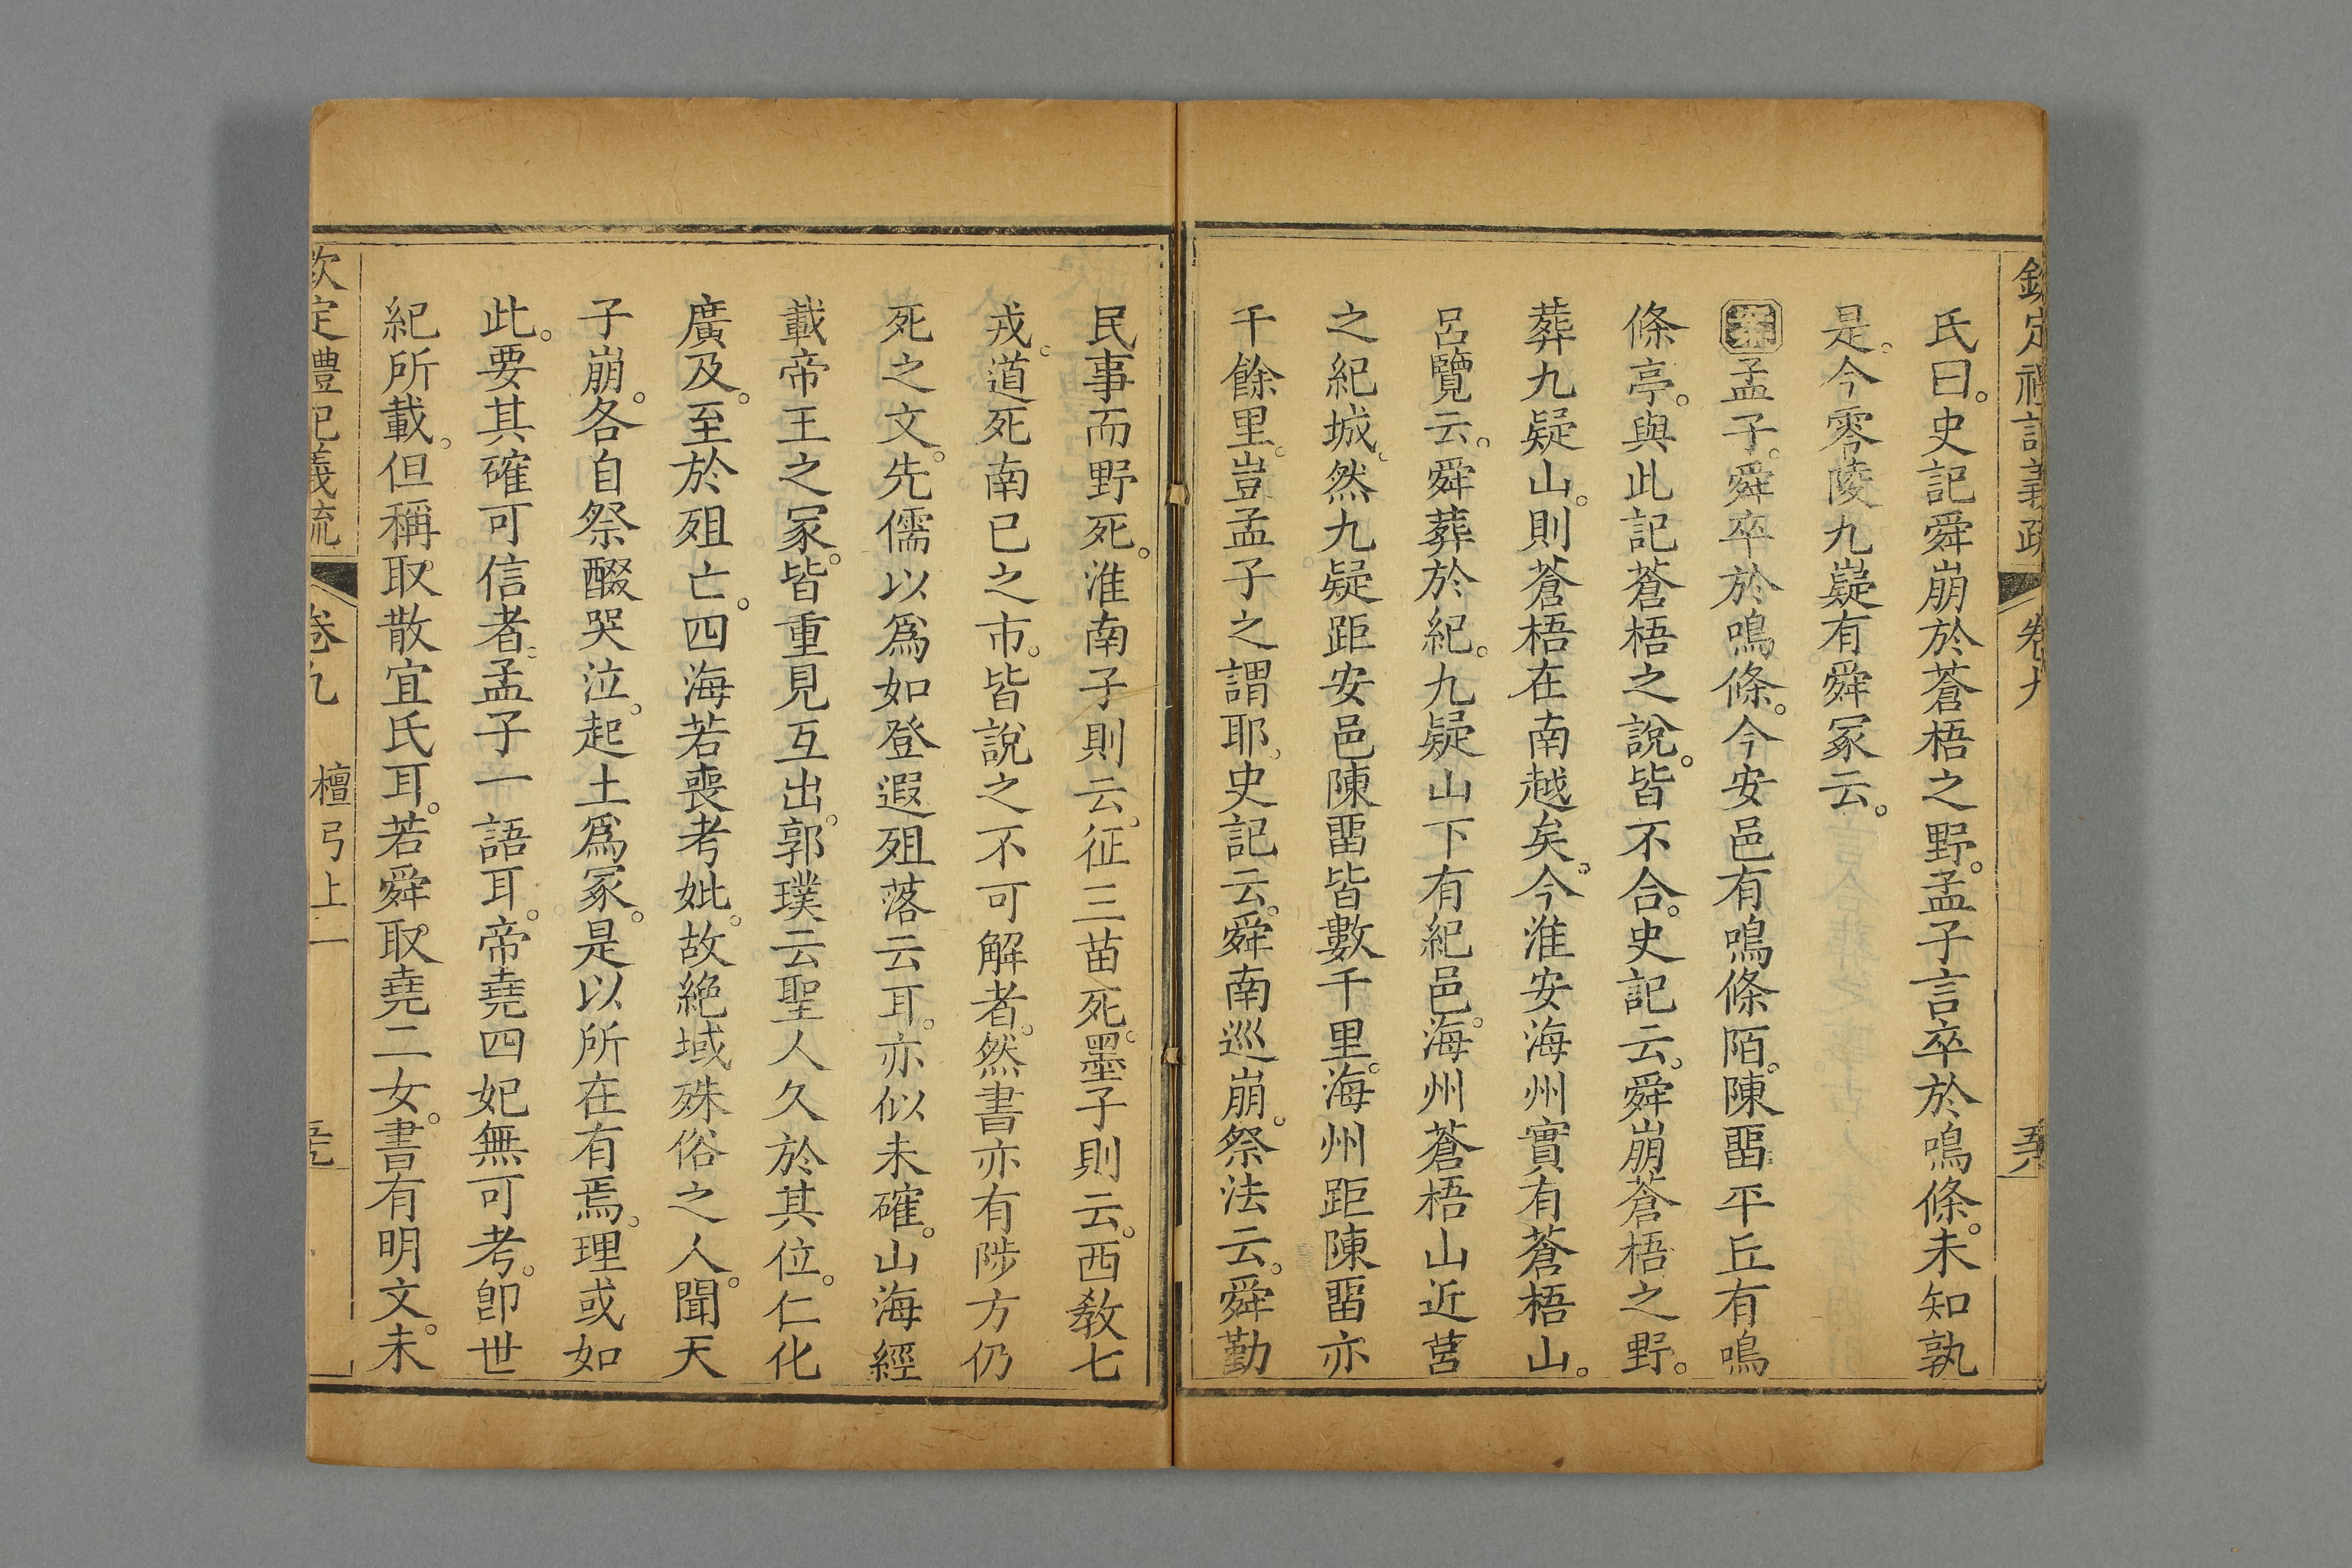 欽定禮記義疏 卷九
氏曰。史記舜崩於蒼梧之野。孟子言卒於鳴條。未知孰
是。今零陵九嶷有舜冢云。
案孟子。舜卒於鳴條。今安邑有鳴條陌。陳畱平丘有鳴
條亭。與此記蒼梧之說。皆不合。史記云。舜崩蒼梧之野。
葬九疑山。則蒼梧在南越矣。今淮安海州實有蒼梧山。
呂覽云。舜葬於紀。九疑山下有紀邑。海州蒼梧山近莒
之紀城。然九疑距安邑陳畱皆數千里。海州距陳畱亦
千餘里。豈孟子之謂耶。史記云。舜南巡崩。祭法云。舜勤
民事而野死。淮南子則云。征三苗死。墨子則云。西教七
戎。道死南已之市。皆說之不可解者。然書亦有陟方仍
死之文。先儒以爲如登遐殂落云耳。亦似未確。山海經
載帝王之冢。皆重見互出。郭璞云聖人久於其位。仁化
廣及。至於殂亡。四海若喪考妣。故絕域殊俗之人。聞天
子崩。各自祭醊哭泣。起土爲冢。是以所在有焉。理或如
此。要其確可信者。孟子一語耳。帝堯四妃無可考。卽世
紀所載。但稱取散宜氏耳。若舜取堯二女。書有明文。未
欽定禮記義疏 卷九 檀弓上一